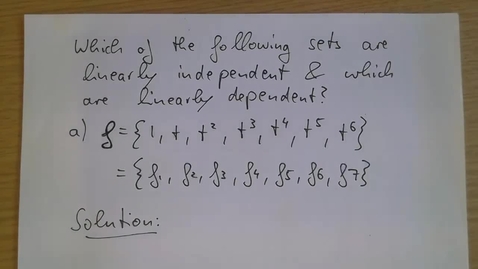 Which of the following sets are
linearly independent & which
are linearly dependent?
a) f = {1, t, t², t³, t⁴, t⁵, t⁶}
= {f₁, f₂, f₃, f₄, f₅, f₆, f₇}
Solution: